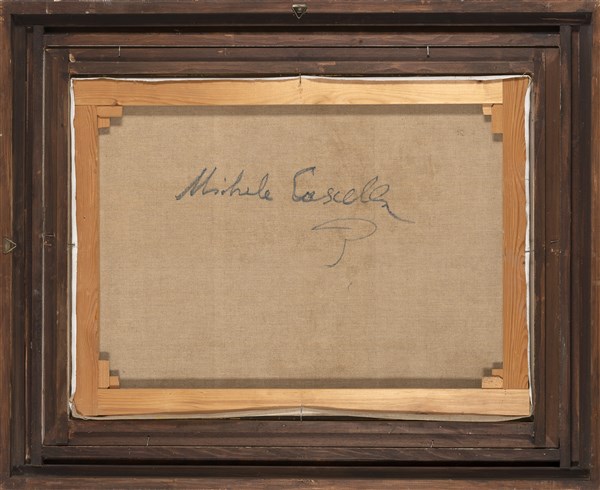 Michele Cascella